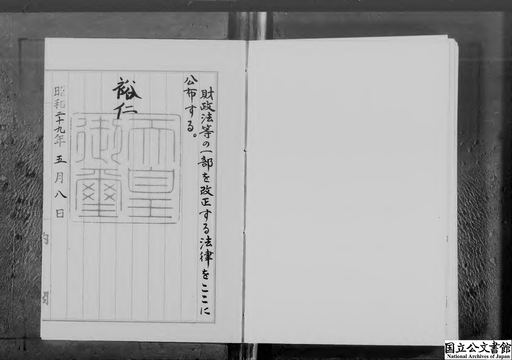 財政法等の一部を改正する法律をここに
公布する。
裕仁
天皇
御璽
昭和二十九年五月八日
国立公文書館
National Archives of Japan